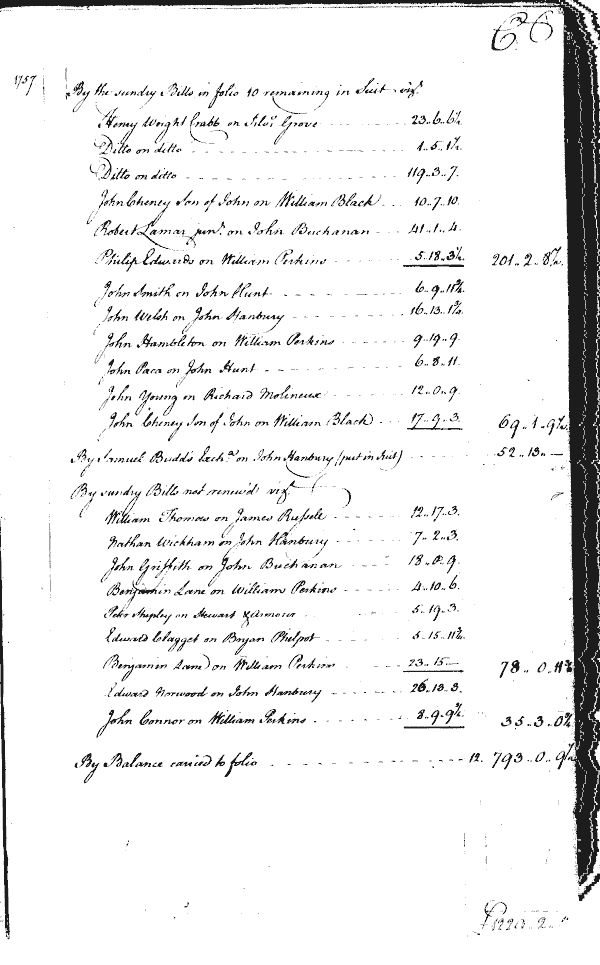 1757
By the sundry Bills in folio 10 remaining in Suit vizt.
Henry Wright Crabb on Silvr. Grove 23..6..6½
Ditto on ditto 1..5..1½
Ditto on ditto 119..3..7.
John Cheney Son of John on William Black 10..7..10.
Robert Lamar junr. on John Buchanan 41..1..4.
Philip Edwards on William Perkins 5..18..3½ 201..2..8
John Smith on John Hunt 6..9..11
John Welsh on John Hanbury 16..13..1
John Hambleton on William Perkins 9..19..9.
John Paca on John Hunt 6..8..11.
John Young on Richard Molineux 12..0..9.
John Cheney Son of John on William Black 17..9..3. 69..1..9
By Samuel Budd's Excha. on John Hanbury (put in Suit) 52..13..—
By sundry Bills not renew'd vizt.
William Thomas on James Russell 12..17..3.
Nathan Wickham on John Hanbury 7..2..3.
John Griffith on John Buchanan 18..0..9.
Benjamin Lane on William Perkins 4..10..6.
Petr Shepley on Stewart & Armour 5..19..3.
Edward Clagget on Bryan Philpot 5..15..11
Benjamin Lane on William Perkins 23..15.— 78..0..11
Edward Norwood on John Hanbury 26..13..3.
John Connor on William Perkins 8..9..9 35..3..0
By Balance carried to folio 12. 793..0..9